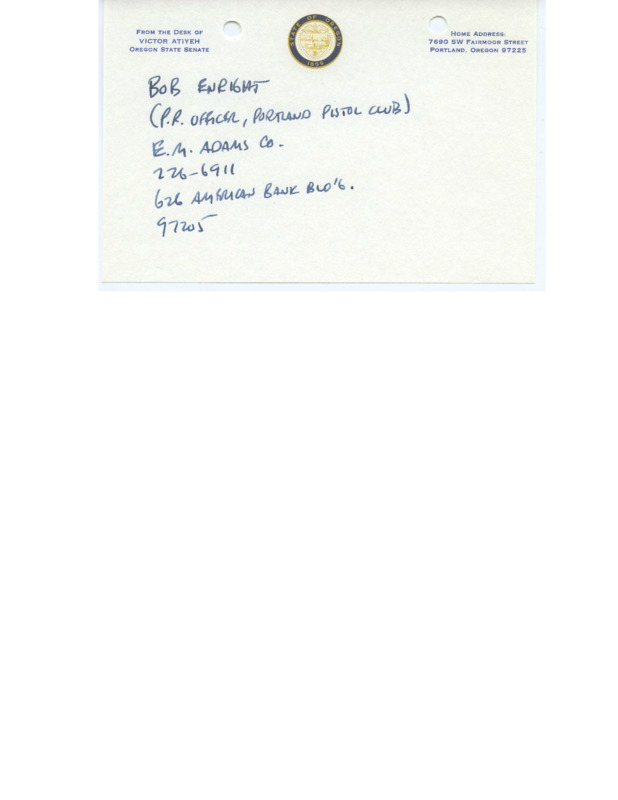 FROM THE DESK OF
VICTOR ATIYEH
OREGON STATE SENATE
STATE OF OREGON
1859
HOME ADDRESS:
7690 SW FAIRMOOR STREET
PORTLAND, OREGON 97225
BOB ENRIGHT
(P.R. OFFICER, PORTLAND PISTOL CLUB)
E.M. ADAMS CO.
226-6911
626 AMERICAN BANK BLD'G.
97205